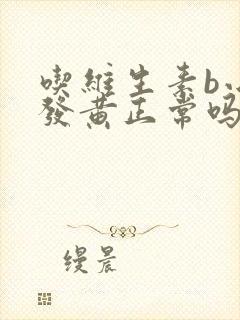 喫維生素b
發黄正常吗
缦晨